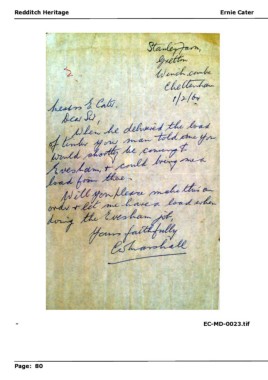 Redditch Heritage
Ernie Cater
Stanley Farm,
Gretton
Winchcombe
Cheltenham
1/2/64
Messrs E Cater.
Dear Sir,
When he delivered the load
of timber your man told me you
would shortly be coming to
Evesham, & could bring me a
load from there.
Will you please make this an
order & let me have a load when
doing the Evesham job,
Yours faithfully
Marshall
EC-MD-0023.tif
Page: 80